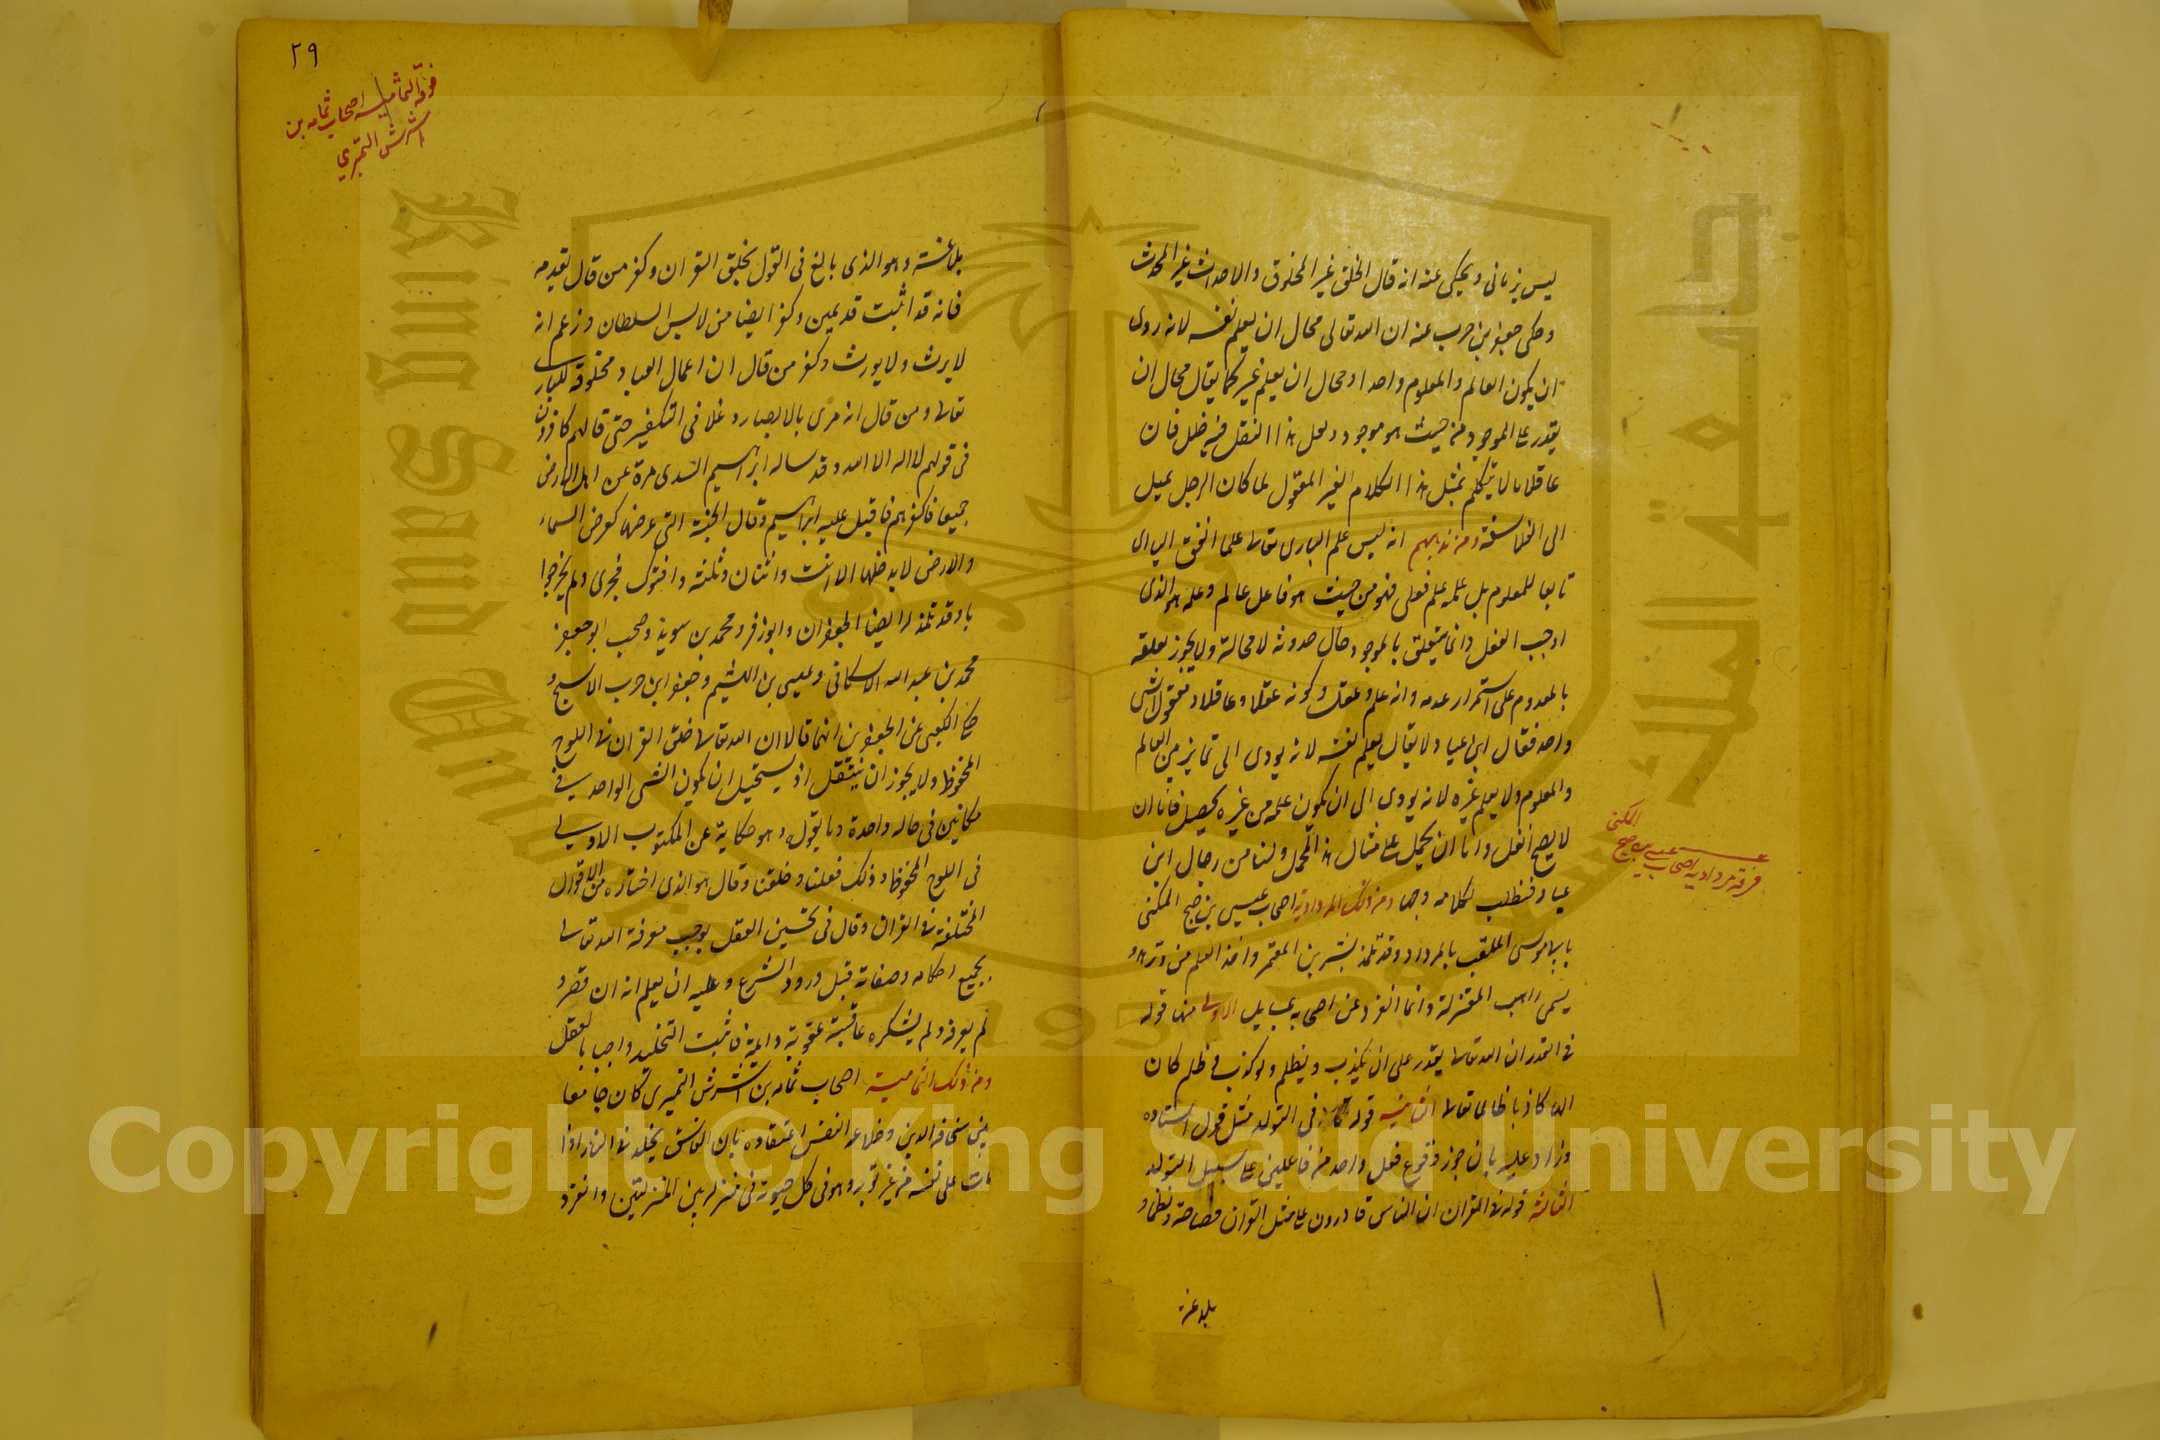 ليس بزماني ويحكى عنه انه قال الخلق غير المخلوق والاحداث غير المحدث
وحكى جعفر بن حرب عنه ان الله تعالى محال ان يعلم نفسه لانه يودى
ان يكون العالم والمعلوم واحدا ومحال ان يعلم غيره كما يقال محال ان
يقدر على الموجود من حيث هو موجود ولعل هذا النقل فيه خلل فان
عاقلا ما لا يتكلم بمثل هذا الكلام الغير المعقول لما كان الرجل يميل
الى الفلاسفة ومن مذهبهم انه ليس علم البارى تعالى علما انفعاليا اى
تابعا للمعلوم بل علمه علم فعلى فهو من حيث هو فاعل عالم وعلمه هو الذى
اوجب الفعل وانما يتعلق بالموجود حال حدوثه لا محالة ولا يجوز تعلقه
بالمعدوم على استمرار عدمه وانه علم وعقل وكونه عقلا وعاقلا ومعقولا شى
واحد فقال ابن عباد لا يقال يعلم نفسه لانه يودى الى تمايز بين العالم
والمعلوم ولا يعلم غيره لانه يودى الى ان يكون علمه من غيره يحصل فاما ان
لا يصح النقل واما ان يحمل على مثال هذا المحمل ولسنا من رجال ابن
عباد فنطلب لكلامه وجها ومن ذلك المردارية اصحاب عيسى بن صبح المكنى
بابى موسى الملقب بالمردار وقد تلمذ لبشر بن المعتمر واخذ العلم منه وتزهد و
يسمى راهب المعتزلة وانما انفرد عن اصحابه بمسايل الاولى منها قوله
فى القدر ان الله تعالى يقدر على ان يكذب ويظلم ولو كذب وظلم كان
الها كاذبا ظالما تعالى الثانية قوله فى التولد مثل قول استاده
وزاد عليه بان جوز وقوع فعل واحد من فاعلين على سبيل التولد
الثالثة قوله فى القران ان الناس قادرون على مثل القران فصاحة ونظما و
بلاغة
المكنى
فرقة مردارية اصحاب عيسى بن صبح
٢٩
فرقة الثمامية اصحاب ثمامه بن
اشرش النميري
بلاغة وهو الذى بالغ فى القول بخلق القران وكفر من قال بقدمه
فانه قد اثبت قديمين وكفر ايضا من لابس السلطان وزعم انه
لا يرث ولا يورث وكفر من قال ان اعمال العباد مخلوقة للبارى
تعالى ومن قال انه مرى بالابصار وغلا فى التكفير حتى قال هم كافرون
فى قولهم لا اله الا الله وقد ساله ابراهيم السندى مرة عن اهل الارض
جميعا فاكفرهم فاقبل عليه ابراهيم وقال الجنة التى عرضها كعرض السماء
والارض لا يدخلها الا انت واثنان وثلثة وافقوك فخزى ولم يحر جوا
با وقد تلمذ له ايضا الجعفران وابو زفر ومحمد بن سويد وصحب ابو جعفر
محمد بن عبد الله الاسكافى وعيسى بن الهيثم وجعفر ابن حرب الاسج و
حكى الكعبى عن الجعفرين انهما قالا ان الله تعالى خلق القران فى اللوح
المحفوظ ولا يجوز ان ينتقل اذ يستحيل ان يكون الشى الواحد فى
مكانين فى حاله واحدة وما يقوله وهو حكاية عن المكتوب الاول
فى اللوح المحفوظ وذلك فعلنا وخلقنا وقال هو الذى اختاره من الاقوال
المختلفة فى القران وقال فى تحسين العقل يوجب معرفة الله تعالى
بجميع احكامه وصفاته قبل ورود الشرع وعليه ان يعلم انه ان قصر و
لم يعرفه ولم يشكره عاقبة عقوبة دايمة فاثبت التخليد واجبا بالعقل
ومن ذلك الثمامية اصحاب ثمامه بن اشرش النميرى كان جامعا
بين سخافة الدين وخلاعة النفس اعتقاده بان الفاسق يخلد فى النار اذا
مات على فسقه من غير توبه وهو فى كل حيوته فى منزلة بين المنزلتين وانفرد
Copyright © King Saud University
King Saud University
جامعة الملك سعود
1957